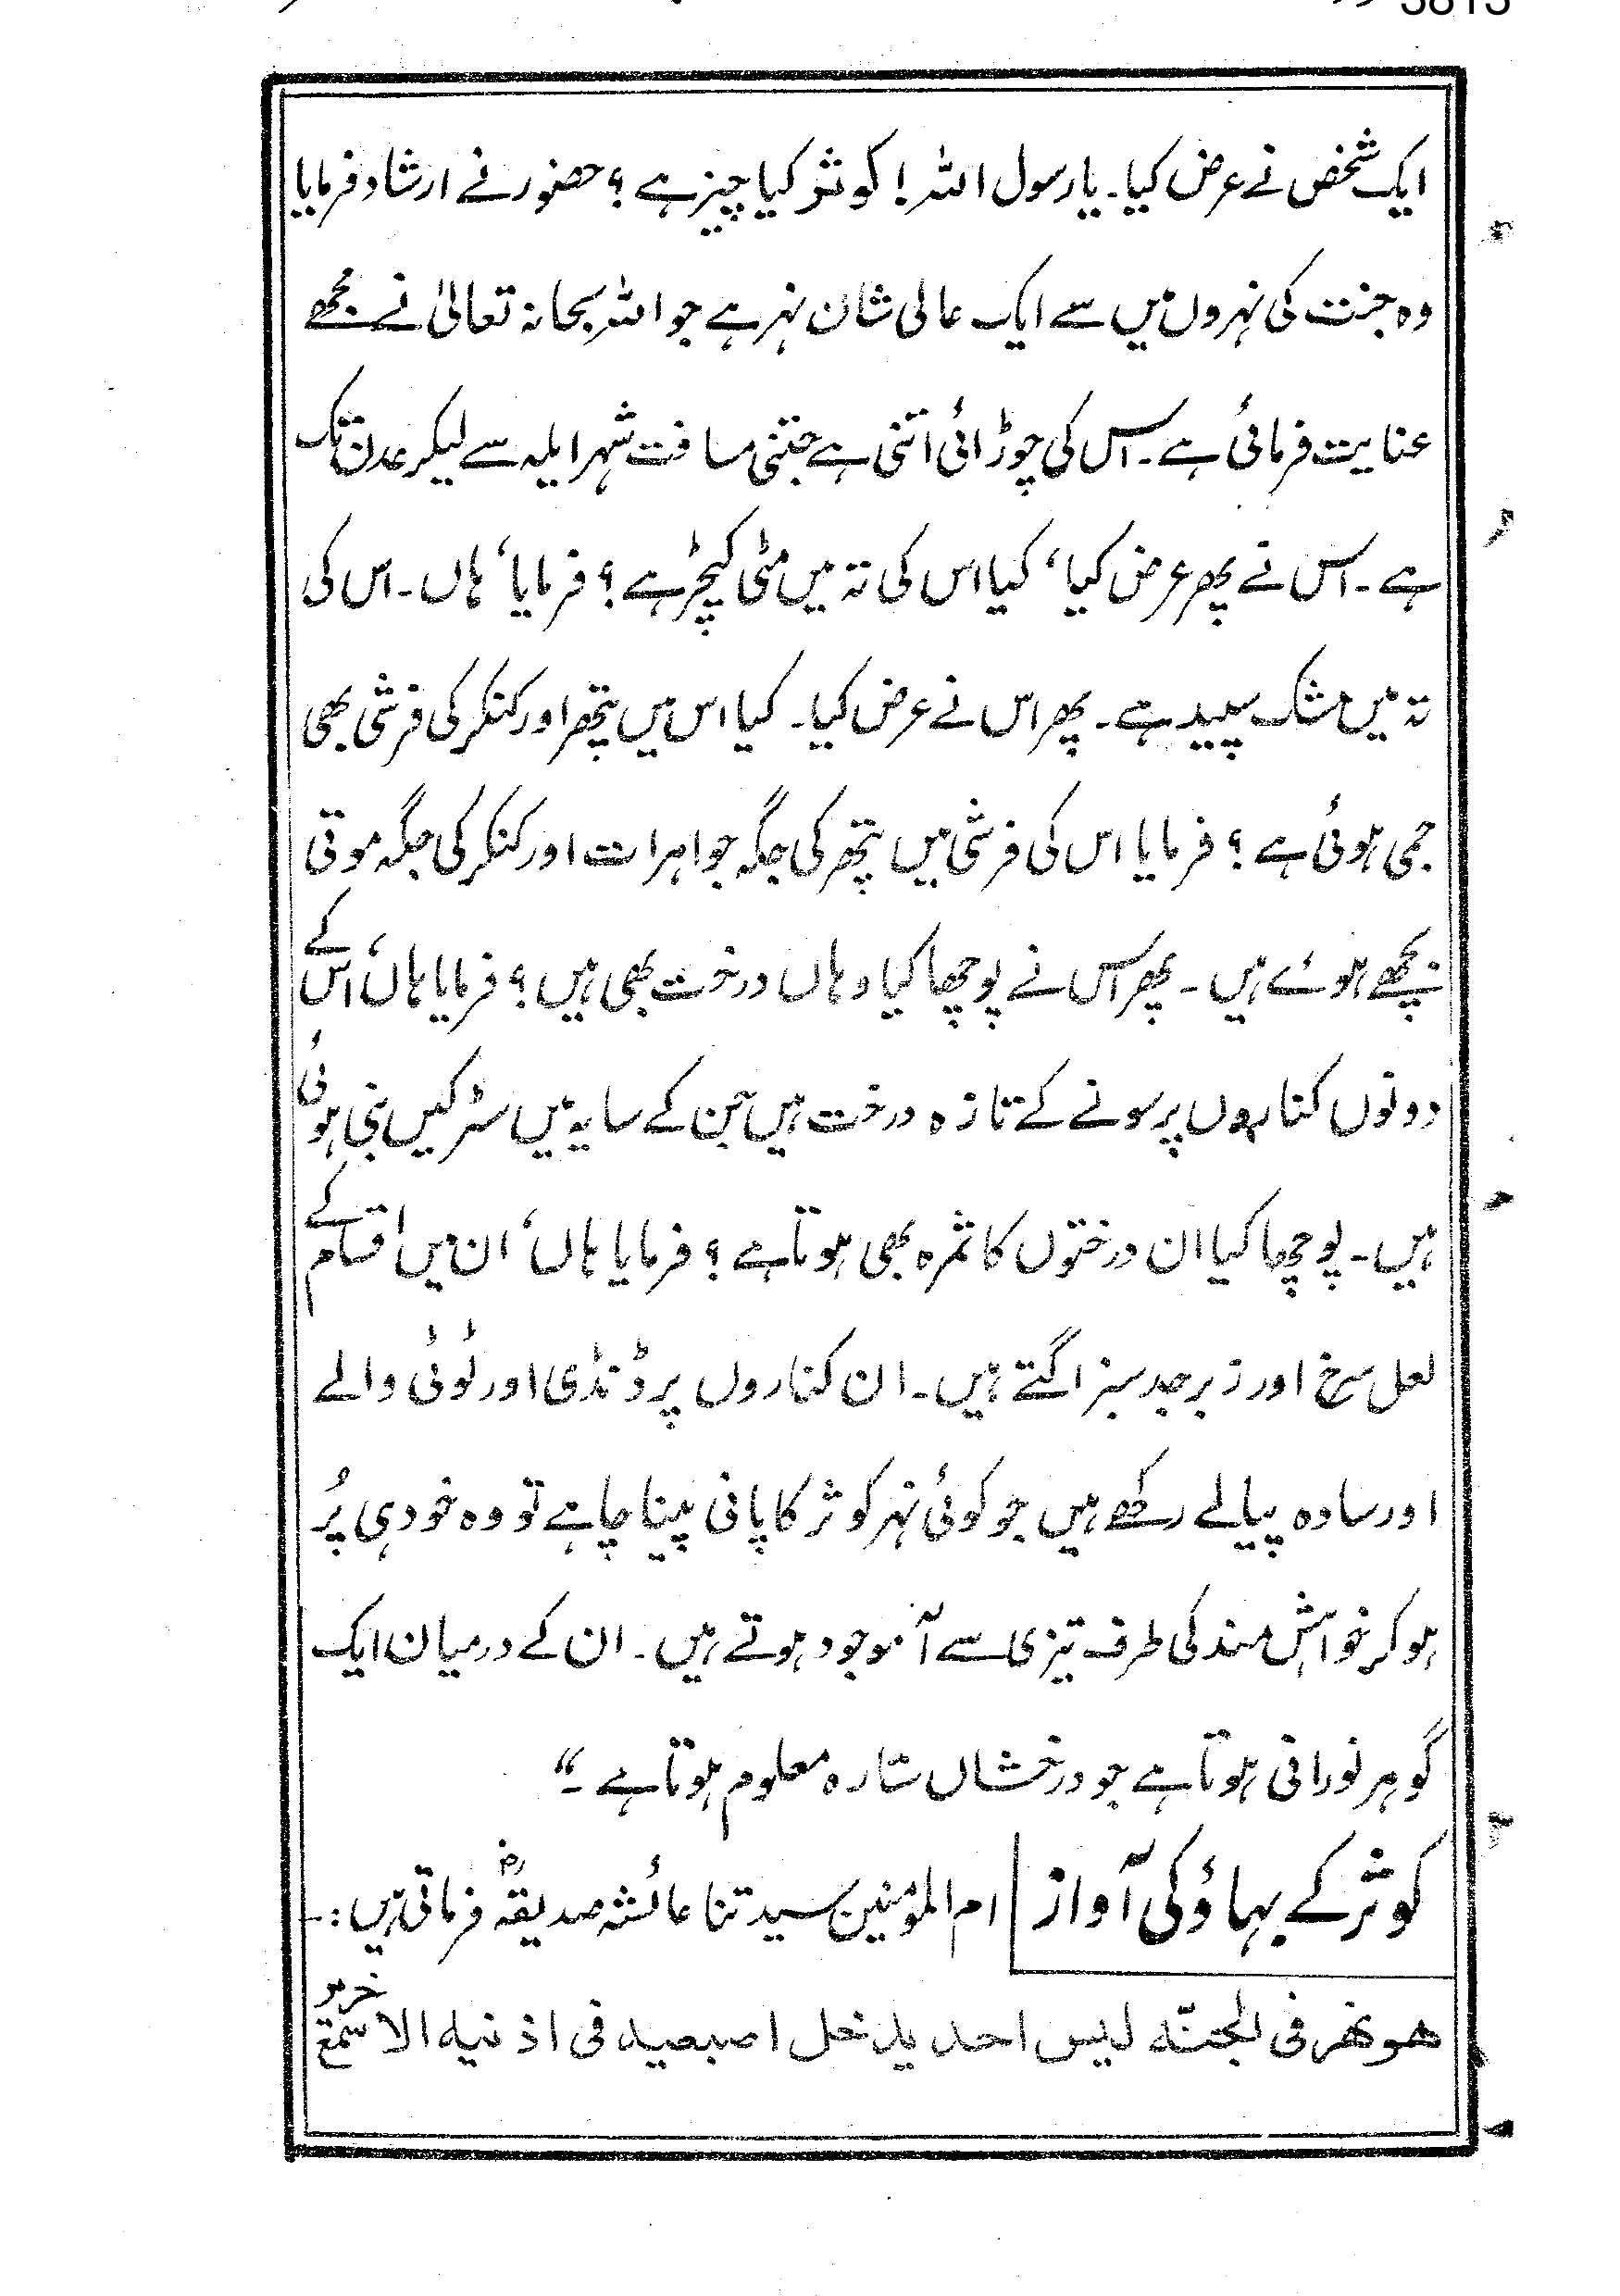 ایک شخص نے عرض کیا۔ یا رسول اللہ! کوثر کیا چیز ہے؟ حضور نے ارشاد فرمایا
وہ جنت کی نہروں میں سے ایک عالی شان نہر ہے جو اللہ سبحانہ تعالیٰ نے مجھے
عنایت فرمائی ہے۔ اس کی چوڑائی اتنی ہے جتنی مسافت شہر ایلہ سے لیکر عدن تک
ہے۔ اس نے پھر عرض کیا، کیا اس کی تہ میں مٹی کیچڑ ہے؟ فرمایا، ہاں۔ اس کی
تہ میں مشک سپید ہے۔ پھر اس نے عرض کیا۔ کیا اس میں پتھر اور کنکر کی فرشی بھی
جمی ہوئی ہے؟ فرمایا اس کی فرشی میں پتھر کی جگہ جواہرات اور کنکر کی جگہ موتی
بچھے ہوئے ہیں۔ پھر اس نے پوچھا کیا وہاں درخت بھی ہیں؟ فرمایا ہاں، اس کے
دونوں کناروں پر سونے کے تازہ درخت ہیں جن کے سایہ میں سڑکیں بنی ہوئی
ہیں۔ پوچھا کیا ان درختوں کا ثمرہ بھی ہوتا ہے؟ فرمایا ہاں، ان میں اقسام کے
لعل سرخ اور زبرجد سبز اگتے ہیں۔ ان کناروں پر ڈنڈی اور ٹوٹی والے
اور سادہ پیالے رکھے ہیں جو کوئی نہر کوثر کا پانی پینا چاہے تو وہ خود ہی پُر
ہو کر خواہش مند کی طرف تیزی سے آ موجود ہوتے ہیں۔ ان کے درمیان ایک
گوہر نورانی ہوتا ہے جو درخشاں ستارہ معلوم ہوتا ہے۔“
کوثر کے بہاؤ کی آواز ام المؤمنین سیدتنا عائشہ صدیقہؓ فرماتی ہیں:-
ھو نھر فی الجنّۃ لیس احد یدخل اصبعیہ فی اذنیہ الا سمع خریر